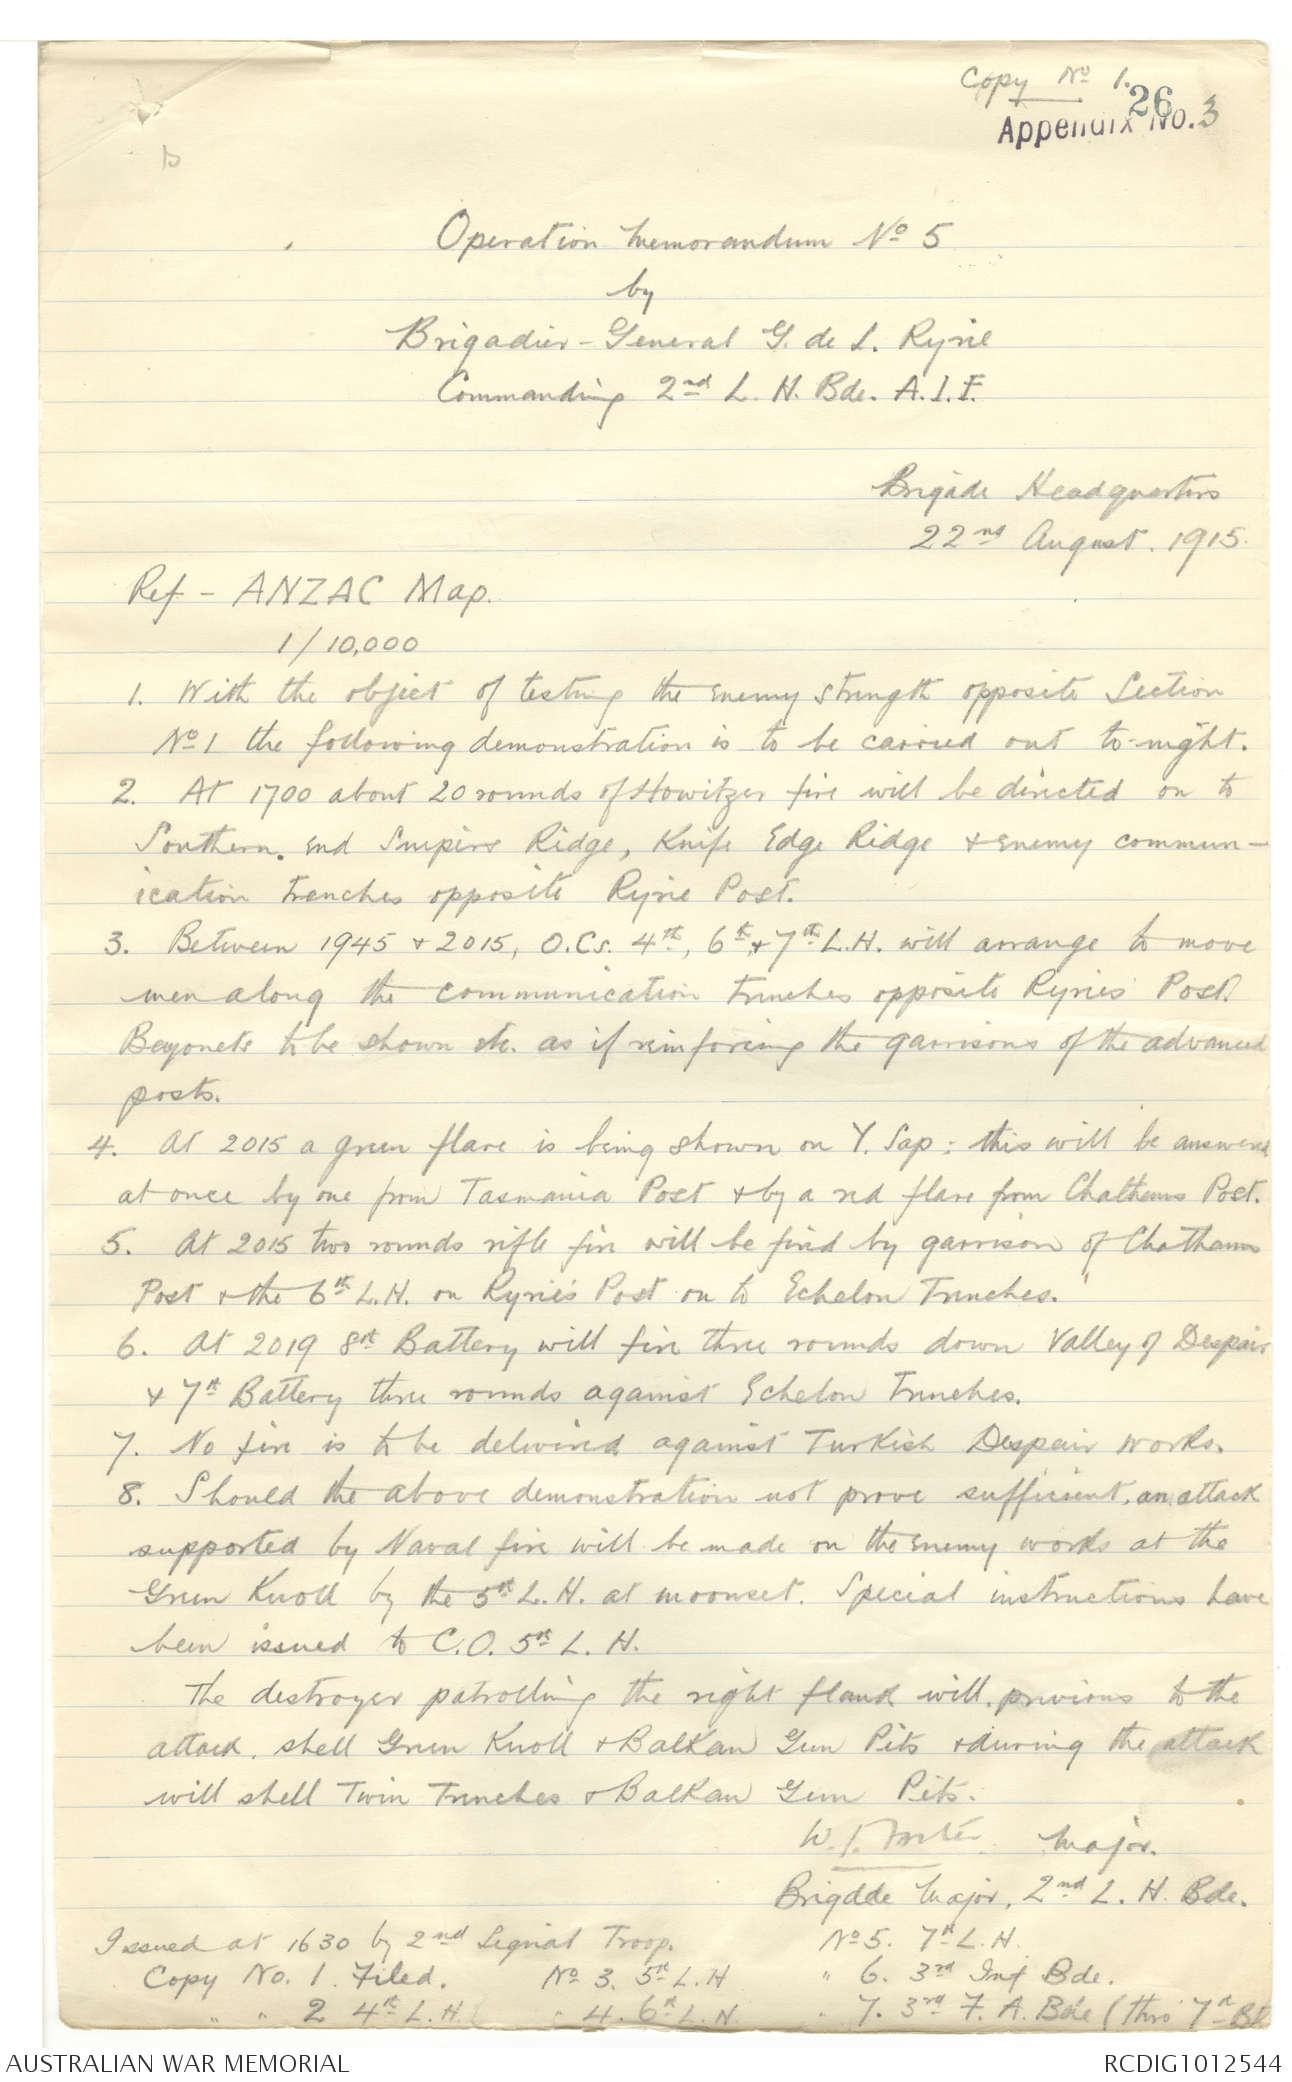 Copy No 1.
26
Appendix No. 3
Operation Memorandum No 5
by
Brigadier-General G. de L. Ryrie
Commanding 2nd L. H. Bde. A.I.F.
Brigade Headquarters
22nd August. 1915.
Ref - ANZAC Map.
1/10,000
1. With the object of testing the enemy strength opposite Section
No 1 the following demonstration is to be carried out to-night.
2. At 1700 about 20 rounds of Howitzer fire will be directed on to
Southern end Snipers Ridge, Knife Edge Ridge & enemy commun-
ication trenches opposite Ryrie Post.
3. Between 1945 & 2015, O.Cs. 4th, 6th & 7th L.H. will arrange to move
men along the communication trenches opposite Ryries Post.
Bayonets to be shown etc. as if reinforcing the garrisons of the advanced
posts.
4. At 2015 a green flare is being shown on Y. Sap: this will be answered
at once by one from Tasmania Post & by a red flare from Chathams Post.
5. At 2015 two rounds rifle fire will be fired by garrison of Chathams
Post & the 6th L.H. on Ryrie's Post on to Echelon Trenches.
6. At 2019 8th Battery will fire three rounds down Valley of Despair
& 7th Battery three rounds against Echelon Trenches.
7. No fire is to be delivered against Turkish Despair Works.
8. Should the above demonstration not prove sufficient, an attack
supported by Naval fire will be made on the enemy works at the
Green Knoll by the 5th L.H. at moonset. Special instructions have
been issued to C.O. 5th L. H.
The destroyer patrolling the right flank will, previous to the
attack, shell Green Knoll & Balkan Gun Pits & during the attack
will shell Twin Trenches & Balkan Gun Pits.
W. J. Foster Major.
Brigade Major, 2nd L. H. Bde.
Issued at 1630 by 2nd Signal Troop.
Copy No. 1. Filed.
" " 2 4th L.H.
No 3. 5th L.H
" 4. 6th L.H.
No 5. 7th L.H.
" 6. 3rd Inf Bde.
" 7. 3rd F. A. Bde (thro' 7th
AUSTRALIAN WAR MEMORIAL
RCDIG1012544